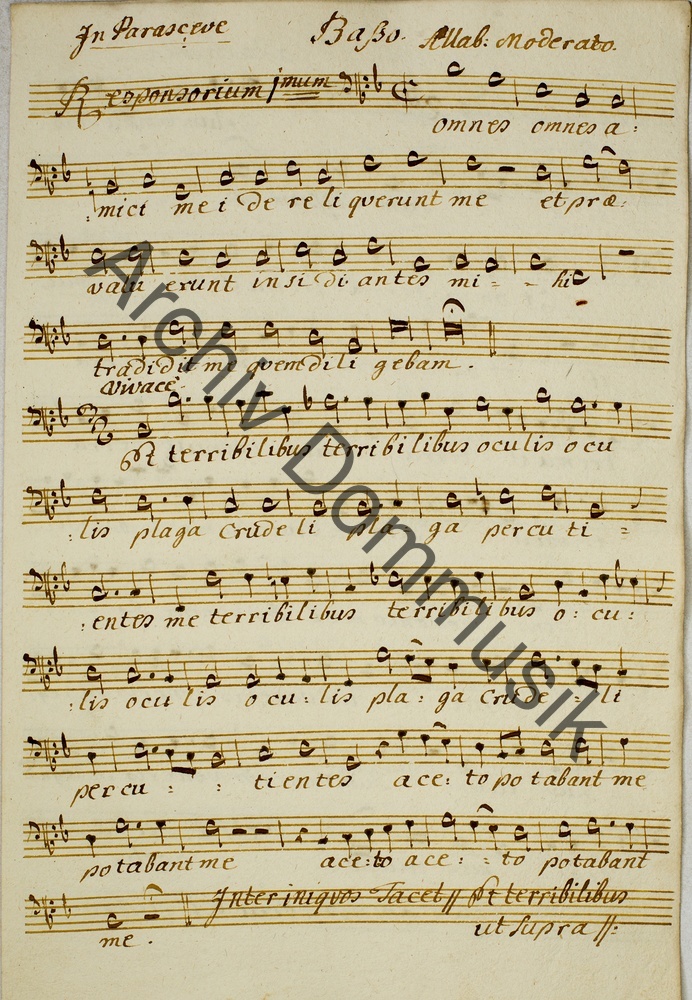 In Parasceve Baßo. Allab: Moderato.
Responsorium jmum
omnes omnes a:
:mici me i de re li querunt me et præ:
valu erunt insi di antes mi - - hi
tradidit me quem di li gebam.
vivace
Et terribilibus terribilibus oculis o cu
:lis plaga crude li pla ga percu ti =
:entes me terribilibus terribilibus o: cu:
:lis ocu lis o cu: lis pla: ga crude = li
per cu : : tientes ace: to po tabant me
potabant me ace:to ace : : to potabant
Inter iniquos Tacet || Et terribilibus
me. ut supra ||:
Archiv Dommusik